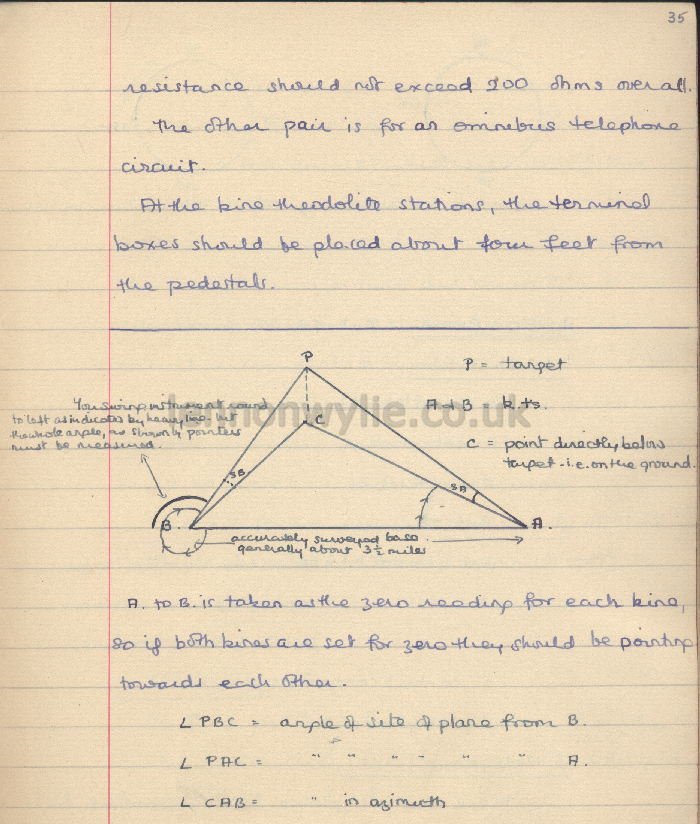 35
resistance should not exceed 200 ohms overall.
The other pair is for an omnibus telephone
circuit.
At the kine theodolite stations, the terminal
boxes should be placed about four feet from
the pedestals.
P
P = target
You swing instrument round
to left as indicated by heavy line but
the whole angle, as shown by pointers
must be measured.
A & B k.ts.
lennonwylie.co.uk
C
C = point directly below
target - i.e. on the ground.
SB
SA
B.
A.
accurately surveyed base
generally about 3½ miles
A. to B. is taken as the zero reading for each kine,
so if both kines are set for zero they should be pointing
towards each other.
∠ PBC = angle of site of plane from B.
∠ PAC = " " " " " " A.
∠ CAB = " in azimuth